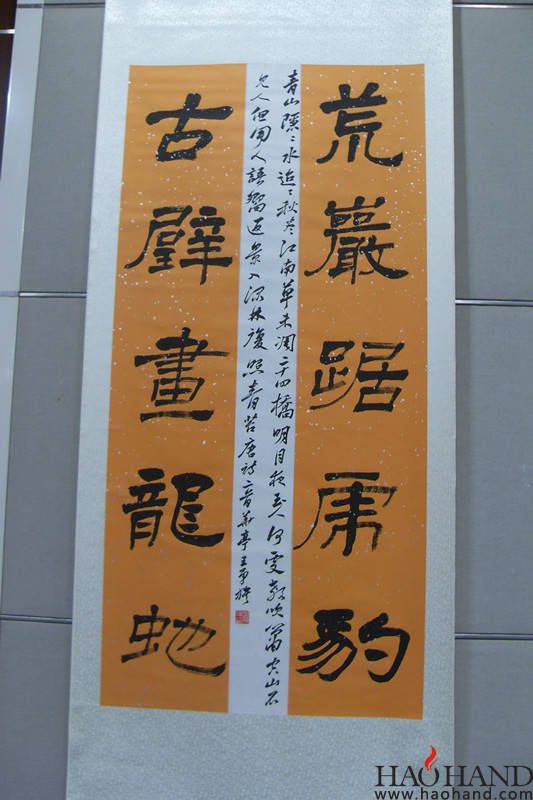 荒巖踞虎豹
青山隱〻水迢〻秋盡江南草未凋二十四橋明月夜玉人何處教吹簫空山不
見人但聞人語響返景入深林復照青苔唐詩二首華亭王
古壁畫龍虵
HAOHAND
www.haohand.com